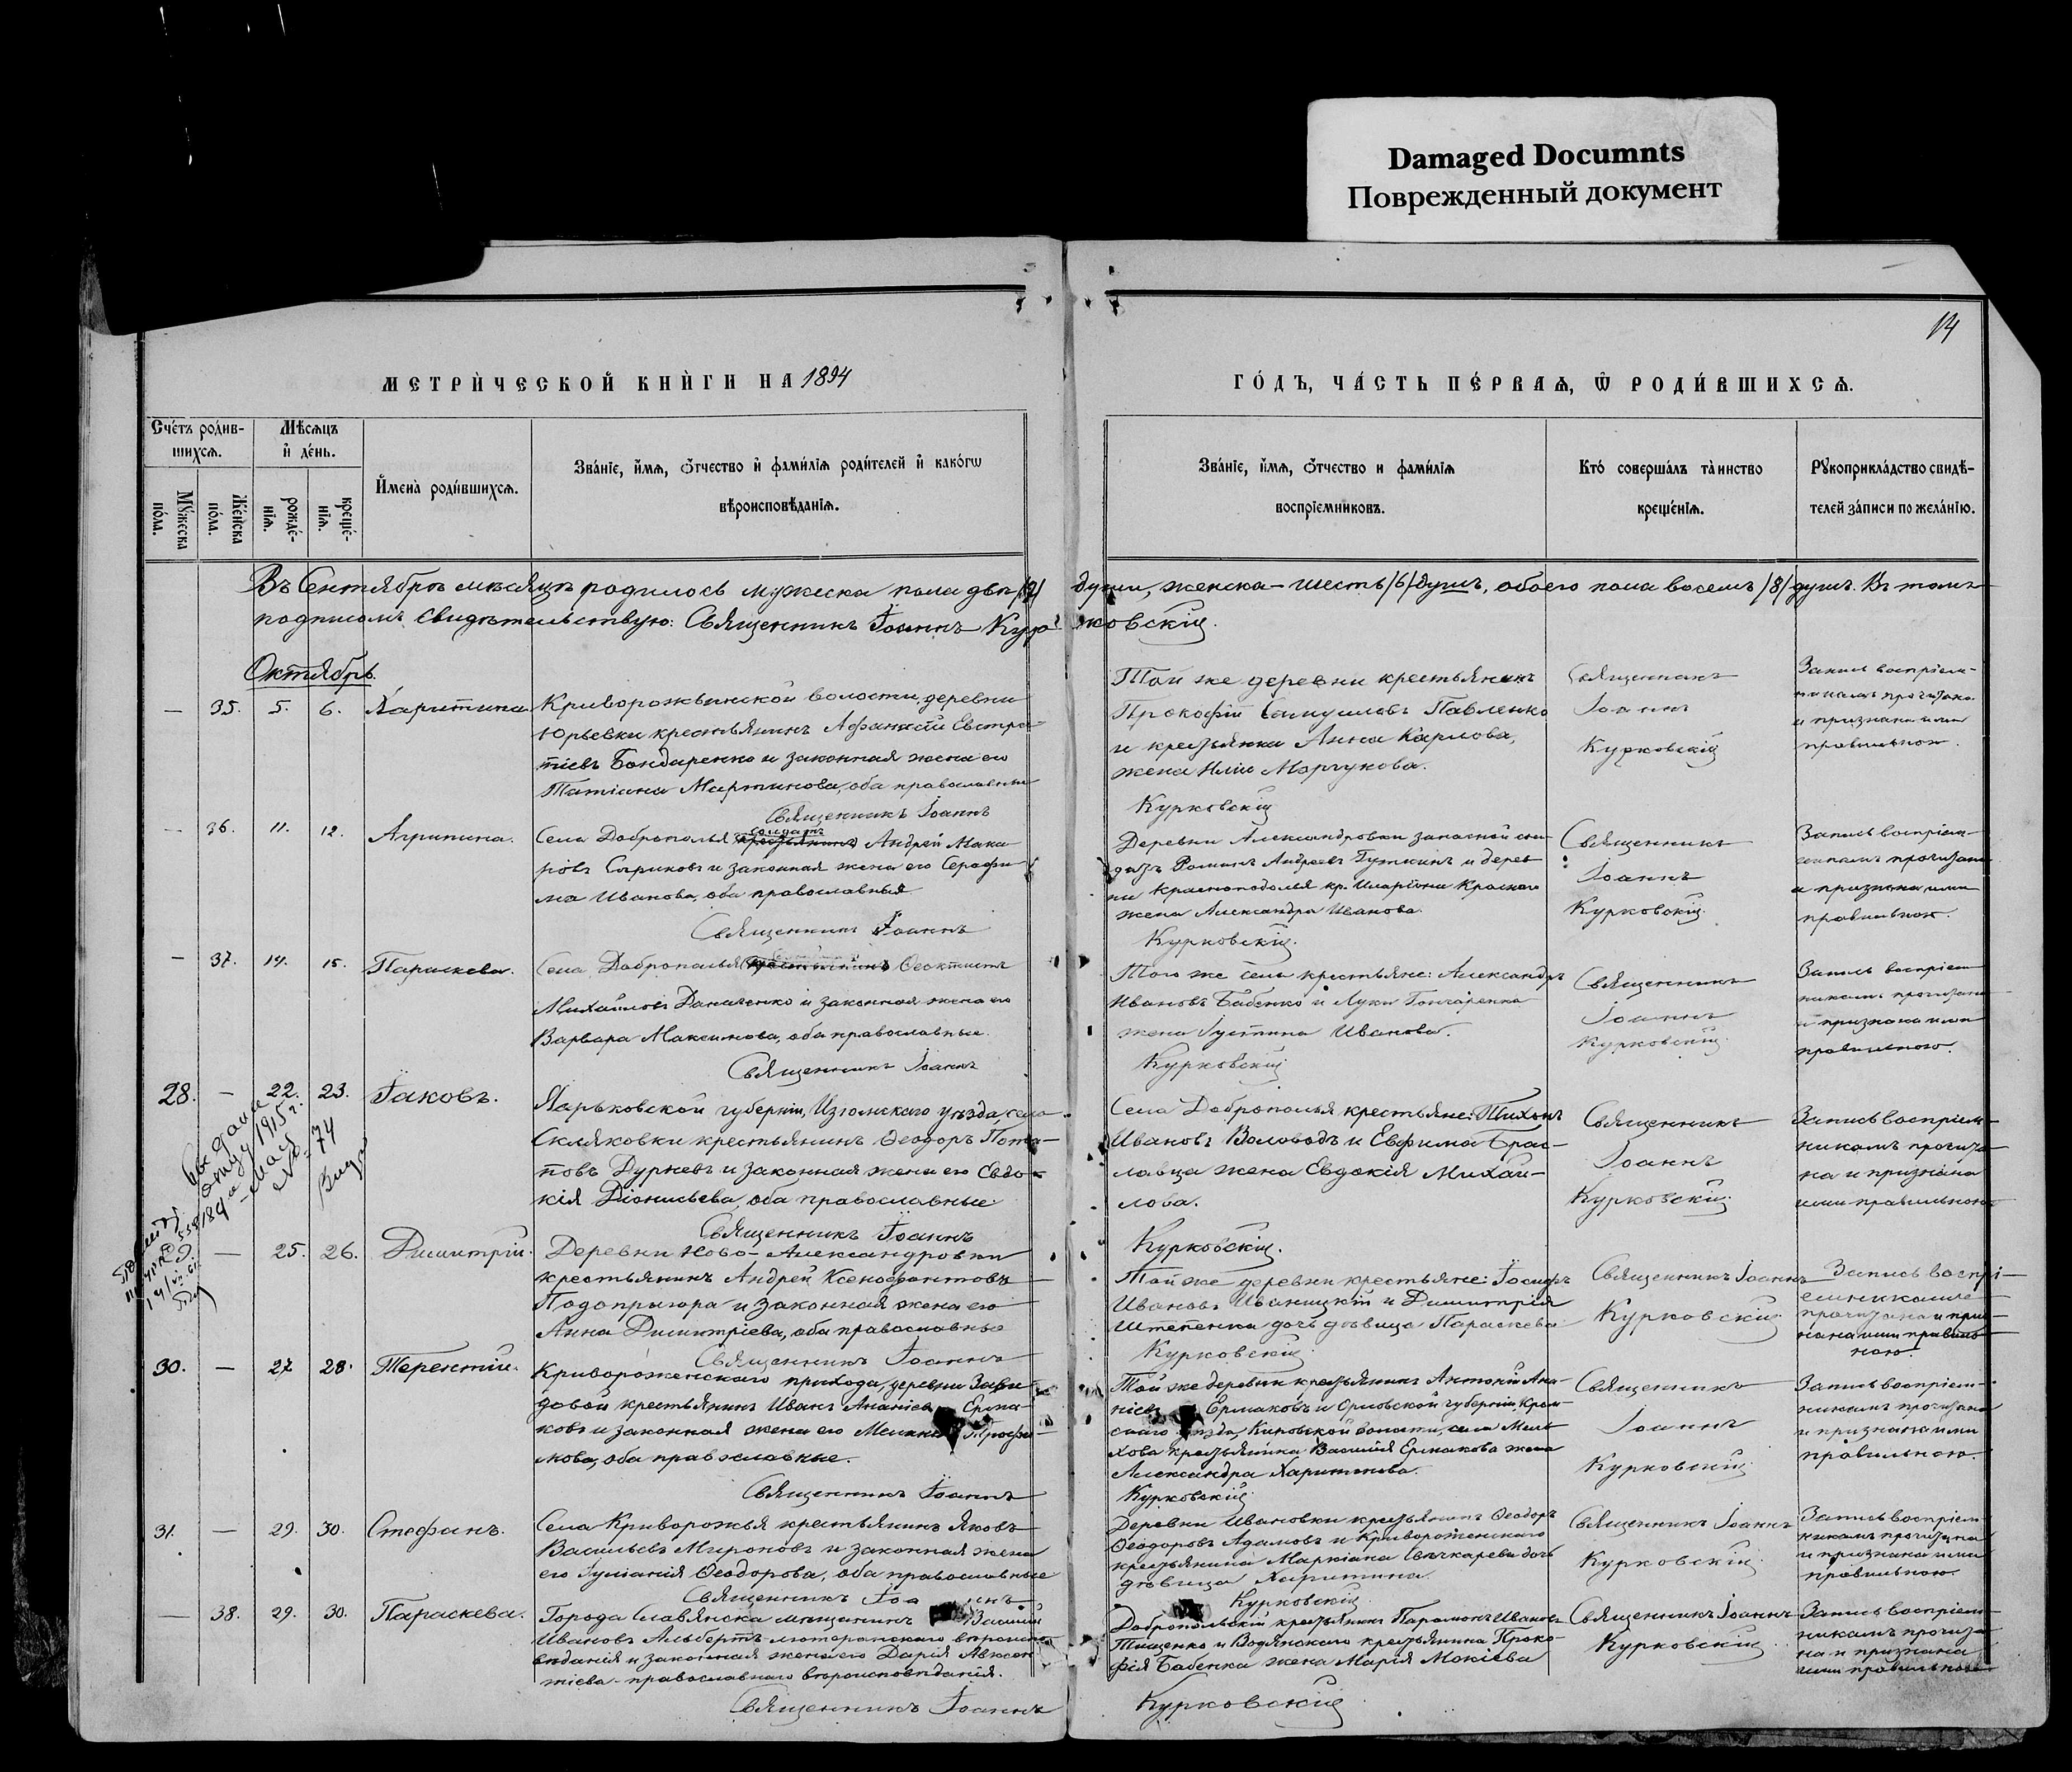 Damaged Documnts
Поврежденный документ
14
МЕТРИ́ЧЕСКОЙ КНИ́ГИ НА 1894
ГО́ДЪ, ЧА́СТЬ ПЕ́РВАѦ, Ѡ҆ РОДИ́ВШИХСѦ.
Сче́тъ роди́в-
шихсѧ.
Мѣ́сѧцъ
и҆ де́нь.
Мꙋ́жеска
по́ла.
Же́нска
по́ла.
рожде́-
нїѧ.
креще́-
нїѧ.
И҆мена̀ роди́вшихсѧ.
Зва́нїе, и҆́мѧ, ѻ҆́тчество и҆ фами́лїѧ роди́телей и҆ како́гѡ
вѣроисповѣ́данїѧ.
Зва́нїе, и҆́мѧ, ѻ҆́тчество и фами́лїѧ
воспрїе́мниковъ.
Кто́ соверша́лъ та́инство
креще́нїѧ.
Рꙋкоприкла́дство свидѣ́-
телей за́писи по жела́нїю.
Въ Сентябрѣ мѣсяцѣ родилось мужеска пола двѣ /2/ души, женска - шесть /6/ душъ, обоего пола восемь /8/ душъ. Въ томъ
подписомъ свидѣтельствую: Священникъ Іоаннъ Курковскій.
Октябрь.
— 35. 5. 6. Харитина
Криворожьинской волости, деревни
Юрьевки крестьянинъ Афанасій Евстра-
тіевъ Бондаренко и законная жена его
Татіана Мартинова, оба православные
Священникъ Іоаннъ Курковскій
Той же деревни крестьянинъ
Прокофій Самуиловъ Павленко
и крестьянка Анна Карпова,
жена Иліи Марчукова.
Священникъ
Іоаннъ
Курковскій
Запись воспріем-
никамъ прочитана
и признана ими
правильною.
— 36. 11. 12. Агрипина.
солдатъ
Села Доброполья крестьянинъ Андрей Мака-
ровъ и законная жена его Серафи-
ма Иванова, оба православныя
Священникъ Іоаннъ Курковскій.
Деревни Александровки запасной сол-
датъ Романъ Андреевъ Гуткинъ и дерев-
ни Краснополья кр. Иларіона
жена Александра Иванова.
Священникъ
Іоаннъ
Курковскій.
Запись воспріем-
никамъ прочитана
и признана ими
правильною.
— 37. 14. 15. Параскева.
Села Доброполья крестьянинъ Феоктистъ
Михайловъ Данченко и законная жена его
Варвара Максимова, оба православные.
Священникъ Іоаннъ Курковскій
Того же села крестьяне: Александръ
Ивановъ Бабенко и Луки Гончаренка
жена Іустина Иванова.
Священникъ
Іоаннъ
Курковскій.
Запись воспріем-
никамъ прочитана
и признана ими
правильною.
28. — 22. 23. Іаковъ.
Харьковской губерніи, Изюмскаго уѣзда, села
Скляковки крестьянинъ Ѳеодоръ Пота-
повъ Дурневъ и законная жена его Евдо-
кія Діонисьева, оба православные
Священникъ Іоаннъ Курковскій.
Села Доброполья крестьяне: Тихонъ
Ивановъ Воловодъ и Евфима Брас-
лавца жена Евдокія Михай-
лова.
Священникъ
Іоаннъ
Курковскій.
Запись воспріем-
никамъ прочита-
на и признана
ими правильною
1915 г.
№ 74
— 25. 26. Димитрій.
Деревни Ново-Александровки
крестьянинъ Андрей Ксенофонтовъ
Подопрыгора и законная жена его
Анна Димитріева, оба православные
Священникъ Іоаннъ Курковскій
Той же деревни крестьяне: Іосифъ
Ивановъ Иваницкій и Димитрія
Штепенка дочь дѣвица Параскева
Священникъ Іоаннъ
Курковскій
Запись воспрі-
емникамъ
прочитана и приз-
нана ими правиль-
ною.
30. — 27 28. Терентій.
Кривороженскаго прихода, деревни
довой крестьянинъ Иванъ Ананіевъ Ерма-
ковъ и законная жена его
мова, оба православные.
Священникъ Іоаннъ Курковскій
Той же деревни крестьянинъ Антоній Ана-
ніевъ Ермаковъ и Орловской губерніи, Кром-
скаго уѣзда, Кировской волости, села
хова крестьянина Василія Ермакова жена
Александра Харитонова.
Священникъ
Іоаннъ
Курковскій
Запись воспріем-
никамъ прочитана
и признана ими
правильною.
31. — 29. 30. Стефанъ.
Села Криворожья крестьянинъ Яковъ
Васильевъ Мироновъ и законная жена
его Іуліанія Ѳеодорова, оба православные
Священникъ Іоаннъ Курковскій
Деревни Ивановки крестьянинъ Ѳеодоръ
Ѳеодоровъ Адамовъ и Криворожскаго
крестьянина Маркіана Свѣчкарева дочь
дѣвица Харитина.
Священникъ Іоаннъ
Курковскій
Запись воспріем-
никамъ прочитана
и признана ими
правильною.
— 38. 29. 30. Параскева.
Города Славянска мѣщанинъ Василій
Ивановъ Альбертъ лютеранскаго вѣроиспо-
вѣданія и законная жена его Дарія Авксен-
тіева - православнаго вѣроисповѣданія.
Священникъ Іоаннъ Курковскій
Добропольскій крестьянинъ Парамонъ Ивановъ
Тищенко и Водянскаго крестьянина Проко-
фія Бабенка жена Марія Мокіева
Священникъ Іоаннъ
Курковскій
Запись воспріем-
никамъ прочита-
на и признана
ими правильною